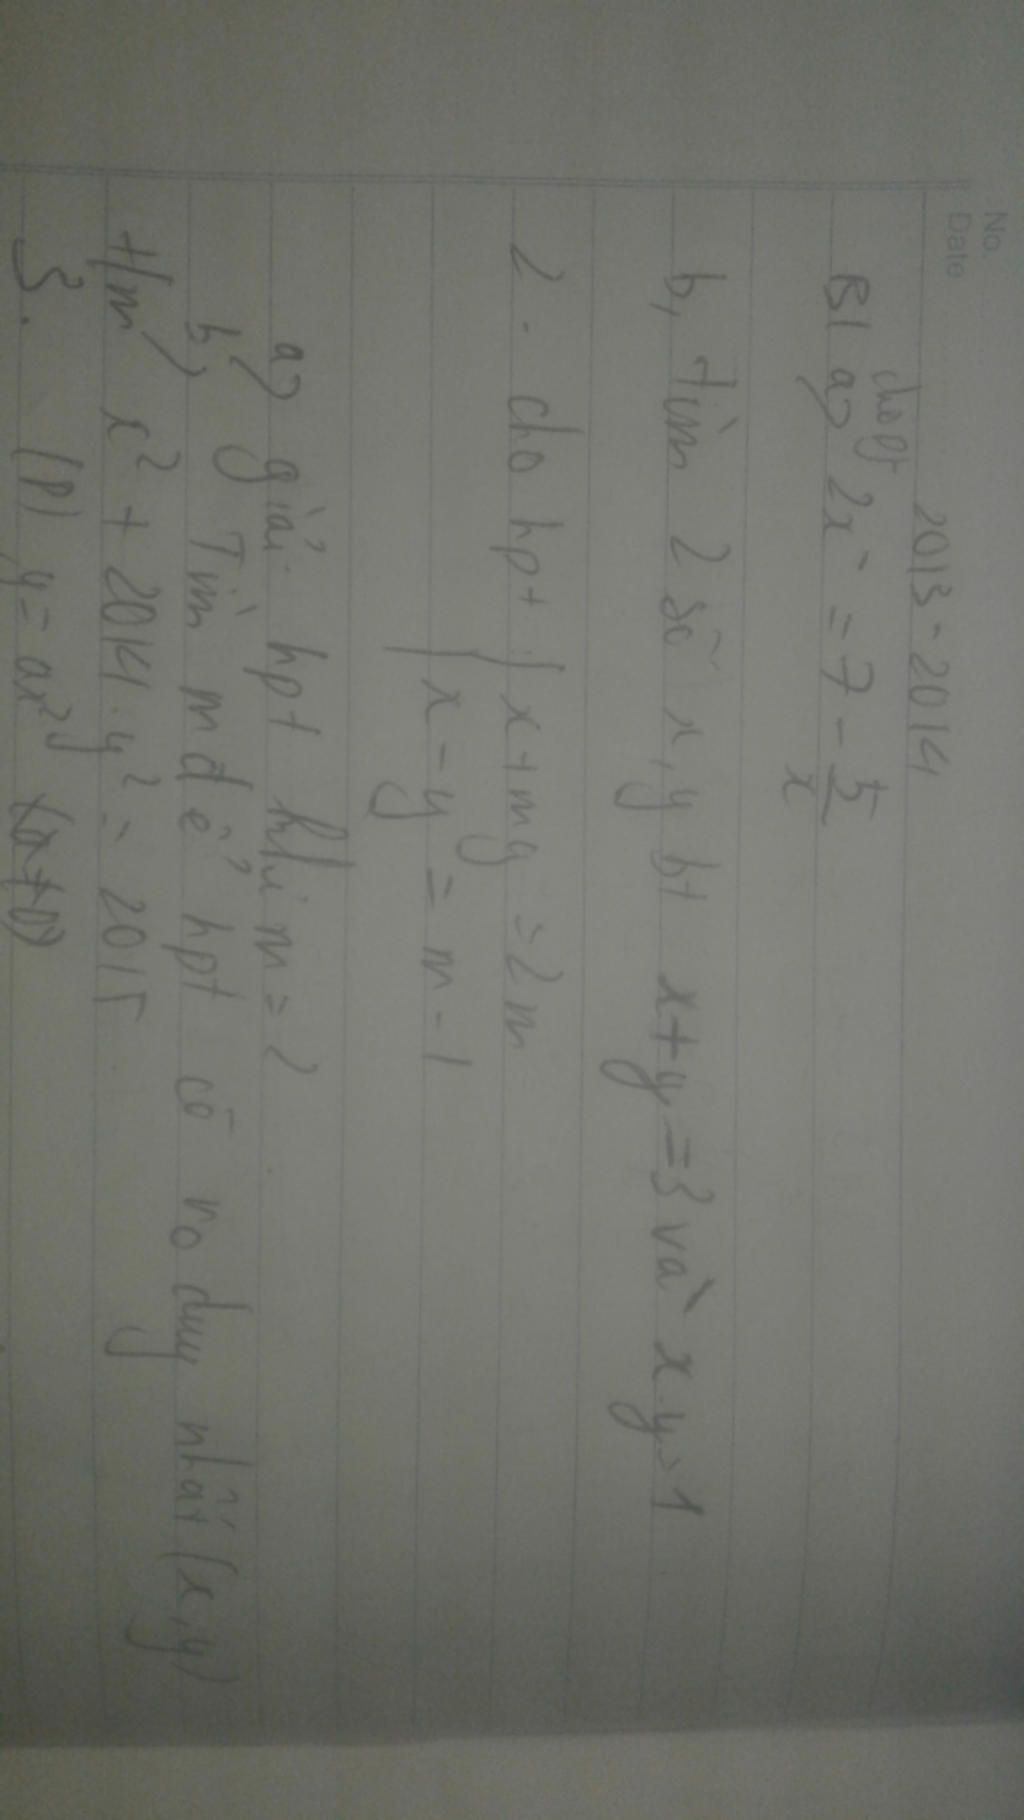 No.
Date
2013-2014
cho pt
B1 a) 2x = 7 - 5/x
b, tìm 2 số x, y bt x+y=3 và x-y=1
2. cho hpt { x+my = 2m
x-y = m-1
a) giải hpt khi m=2
b) Tìm m để hpt có no duy nhất (x,y)
t/m) x² + 2014.y² = 2015
3. (P) y = ax² (a≠0)